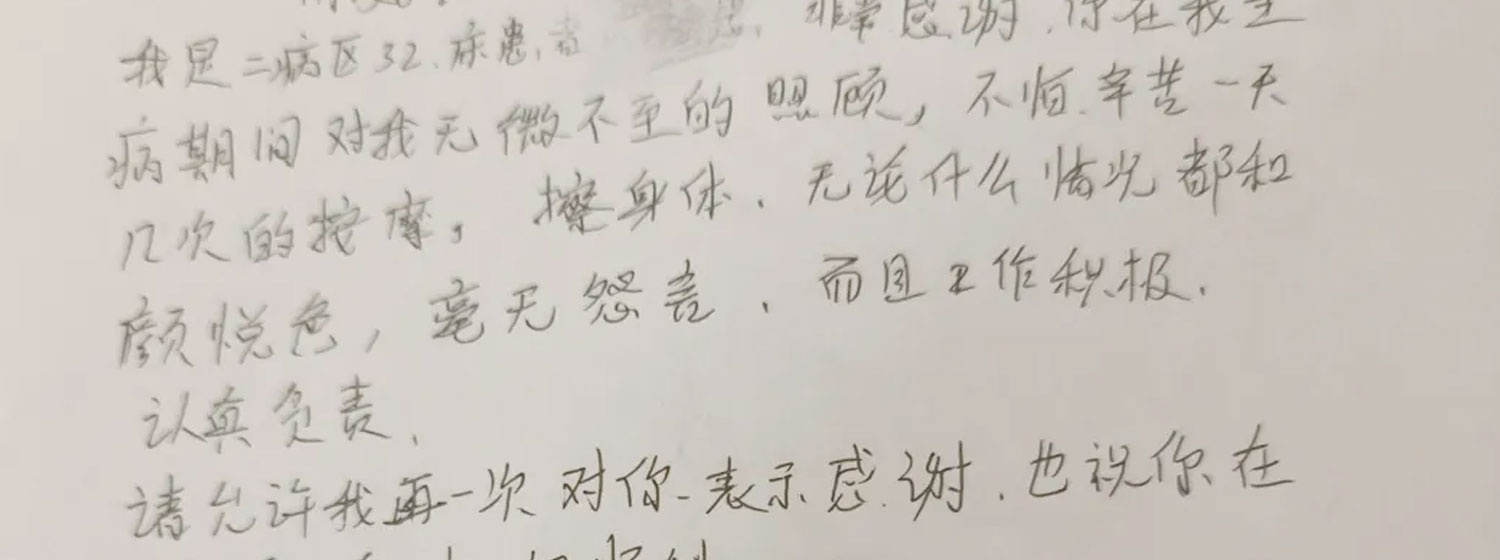 我是二病区32.床患.者 非常感谢.你在我生
病期间对我无微不至的照顾，不怕.辛苦一天
几次的按摩，擦身体.无论什么情况都和
颜悦色，毫无怨言.而且工作积极.
认真负责.
请允许我再一次对你表示感谢.也祝你在